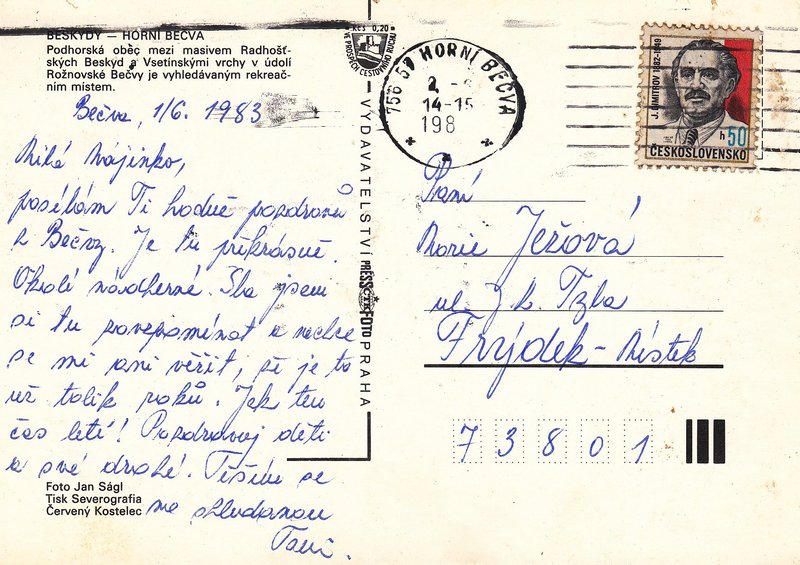 BESKYDY – HORNÍ BEČVA
Podhorská obec mezi masivem Radhošť-
ských Beskyd a Vsetínskými vrchy v údolí
Rožnovské Bečvy je vyhledávaným rekreač-
ním místem.
Bečva, 1/6. 1983
Milá Májinko,
posílám Ti hodně pozdravů
z Bečvy. Je tu překrásně.
Okolí nádherné. Šla jsem
si tu zavzpomínat a nechce
se mi ani věřit, že je to
už tolik roků. Jak ten
čas letí! Pozdravuj děti
a své drahé. Těším se
na shledanou
Foto Jan Ságl
Tisk Severografia
Červený Kostelec
Kčs 0,20
VE PROSPĚCH CESTOVNÍHO RUCHU
VYDAVATELSTVÍ PRESSFOTO PRAHA
ČTK
756 57 HORNÍ BEČVA
2. -6.
14-15
198
J. DIMITROV 1882-1949
h 50
ČESKOSLOVENSKO
Paní
Marie Ježová
ul. J. k. Tyla
Frýdek-Místek
73801